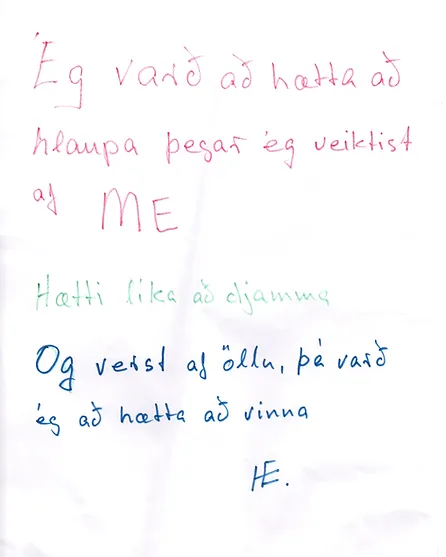 Ég varð að hætta að
hlaupa þegar ég veiktist
af ME
Hætti líka að djamma
Og verst af öllu, þá varð
ég að hætta að vinna
HE.